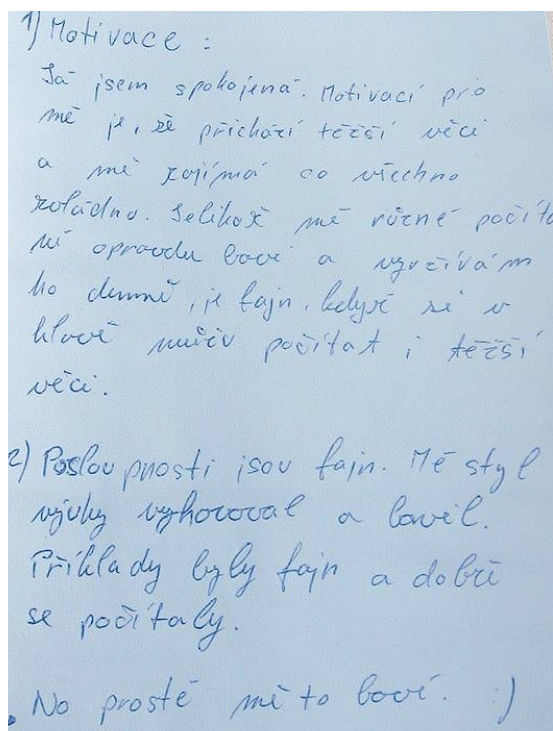 1) Motivace :
Já jsem spokojená. Motivací pro
mě je, že přichází těžší věci
a mě zajímá co všechno
zvládnu. Jelikož mě různé počítá
ní opravdu baví a využívám
ho denně, je fajn, když si v
hlavě můžu počítat i těžší
věci.
2) Posloupnosti jsou fajn. Mě styl
výuky vyhovoval a bavil.
Příklady byly fajn a dobře
se počítaly.
No prostě mě to baví. :)